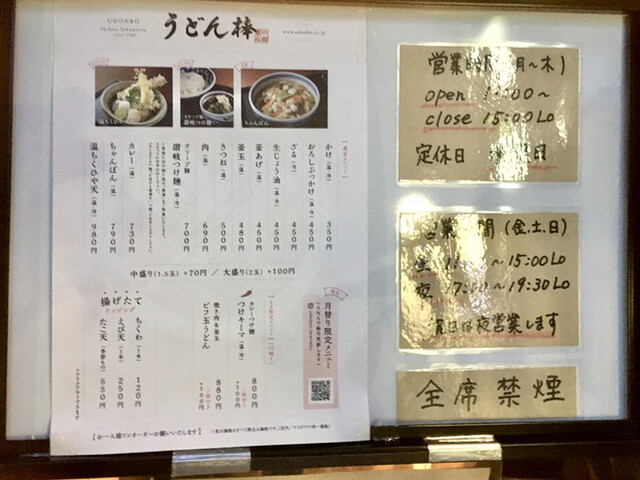 UDONBO
Shikoku Takamatsu
うどん棒
www.udonbo.co.jp
讃岐つけ麺
ちゃんぽん
かけ(温・冷) 350円
おろしぶっかけ(温・冷) 450円
ざる(冷) 450円
生じょう油(温・冷) 450円
釜あげ(温) 450円
釜玉(温) 480円
きつね(温) 500円
肉(温) 690円
オリーブ豚
讃岐つけ麺(温・冷) 700円
カレー(温) 730円
ちゃんぽん(温) 790円
温ちくひや天(温・冷) 980円
中盛り(1.5玉) +70円 / 大盛り(2玉) +100円
月替り限定メニュー
カレーつけ麺
つけキーマ(温・冷) 800円
+100円
焼き肉&釜玉
ビフ玉うどん 880円
+100円
揚げたて
トッピング
ちくわ(1本) 120円
えび天(1本) 250円
たこ天(季節もの) 550円
【お一人様ワンオーダーお願いいたします】
営業時間(月〜木)
open 11:00〜
close 15:00 LO
定休日
営業時間(金.土.日)
昼 11:00〜15:00 LO
夜 17:00〜19:30 LO
祝日は夜営業します
全席禁煙